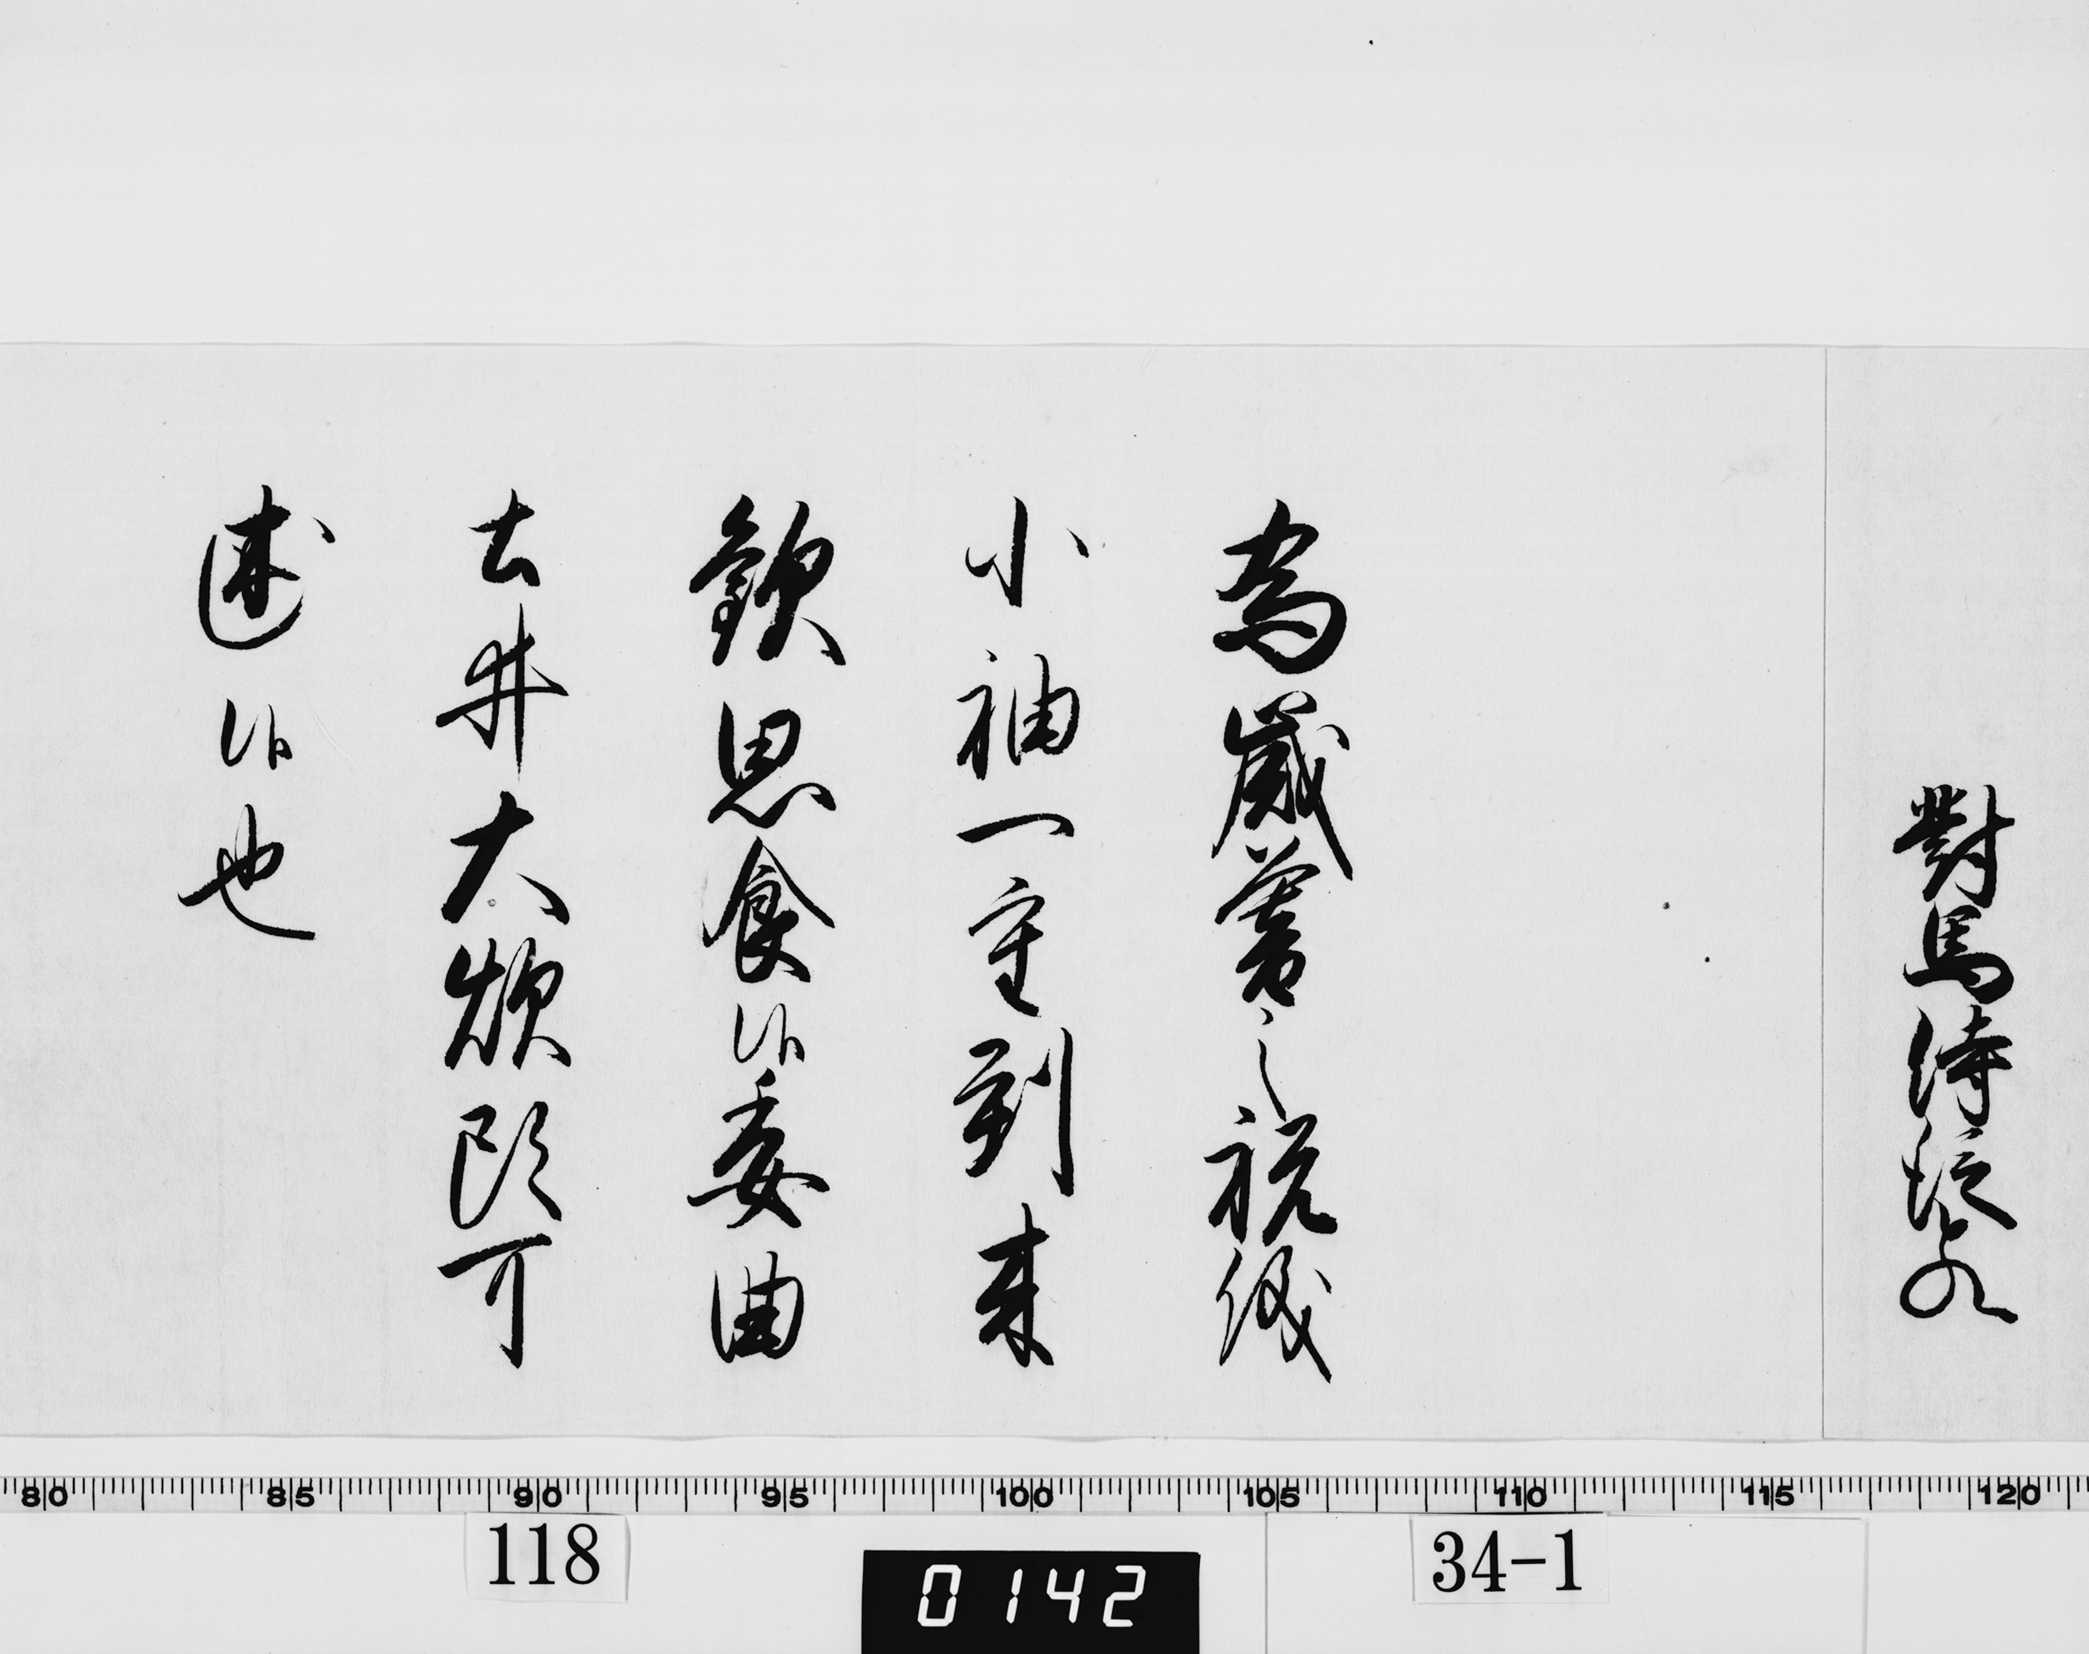 對馬侍従殿
為歳暮之祝儀
小袖一重到来
歓思食候委曲
土井大炊頭可
述候也
80 85 90 95 100 105 110 115 120
118
0142
34-1